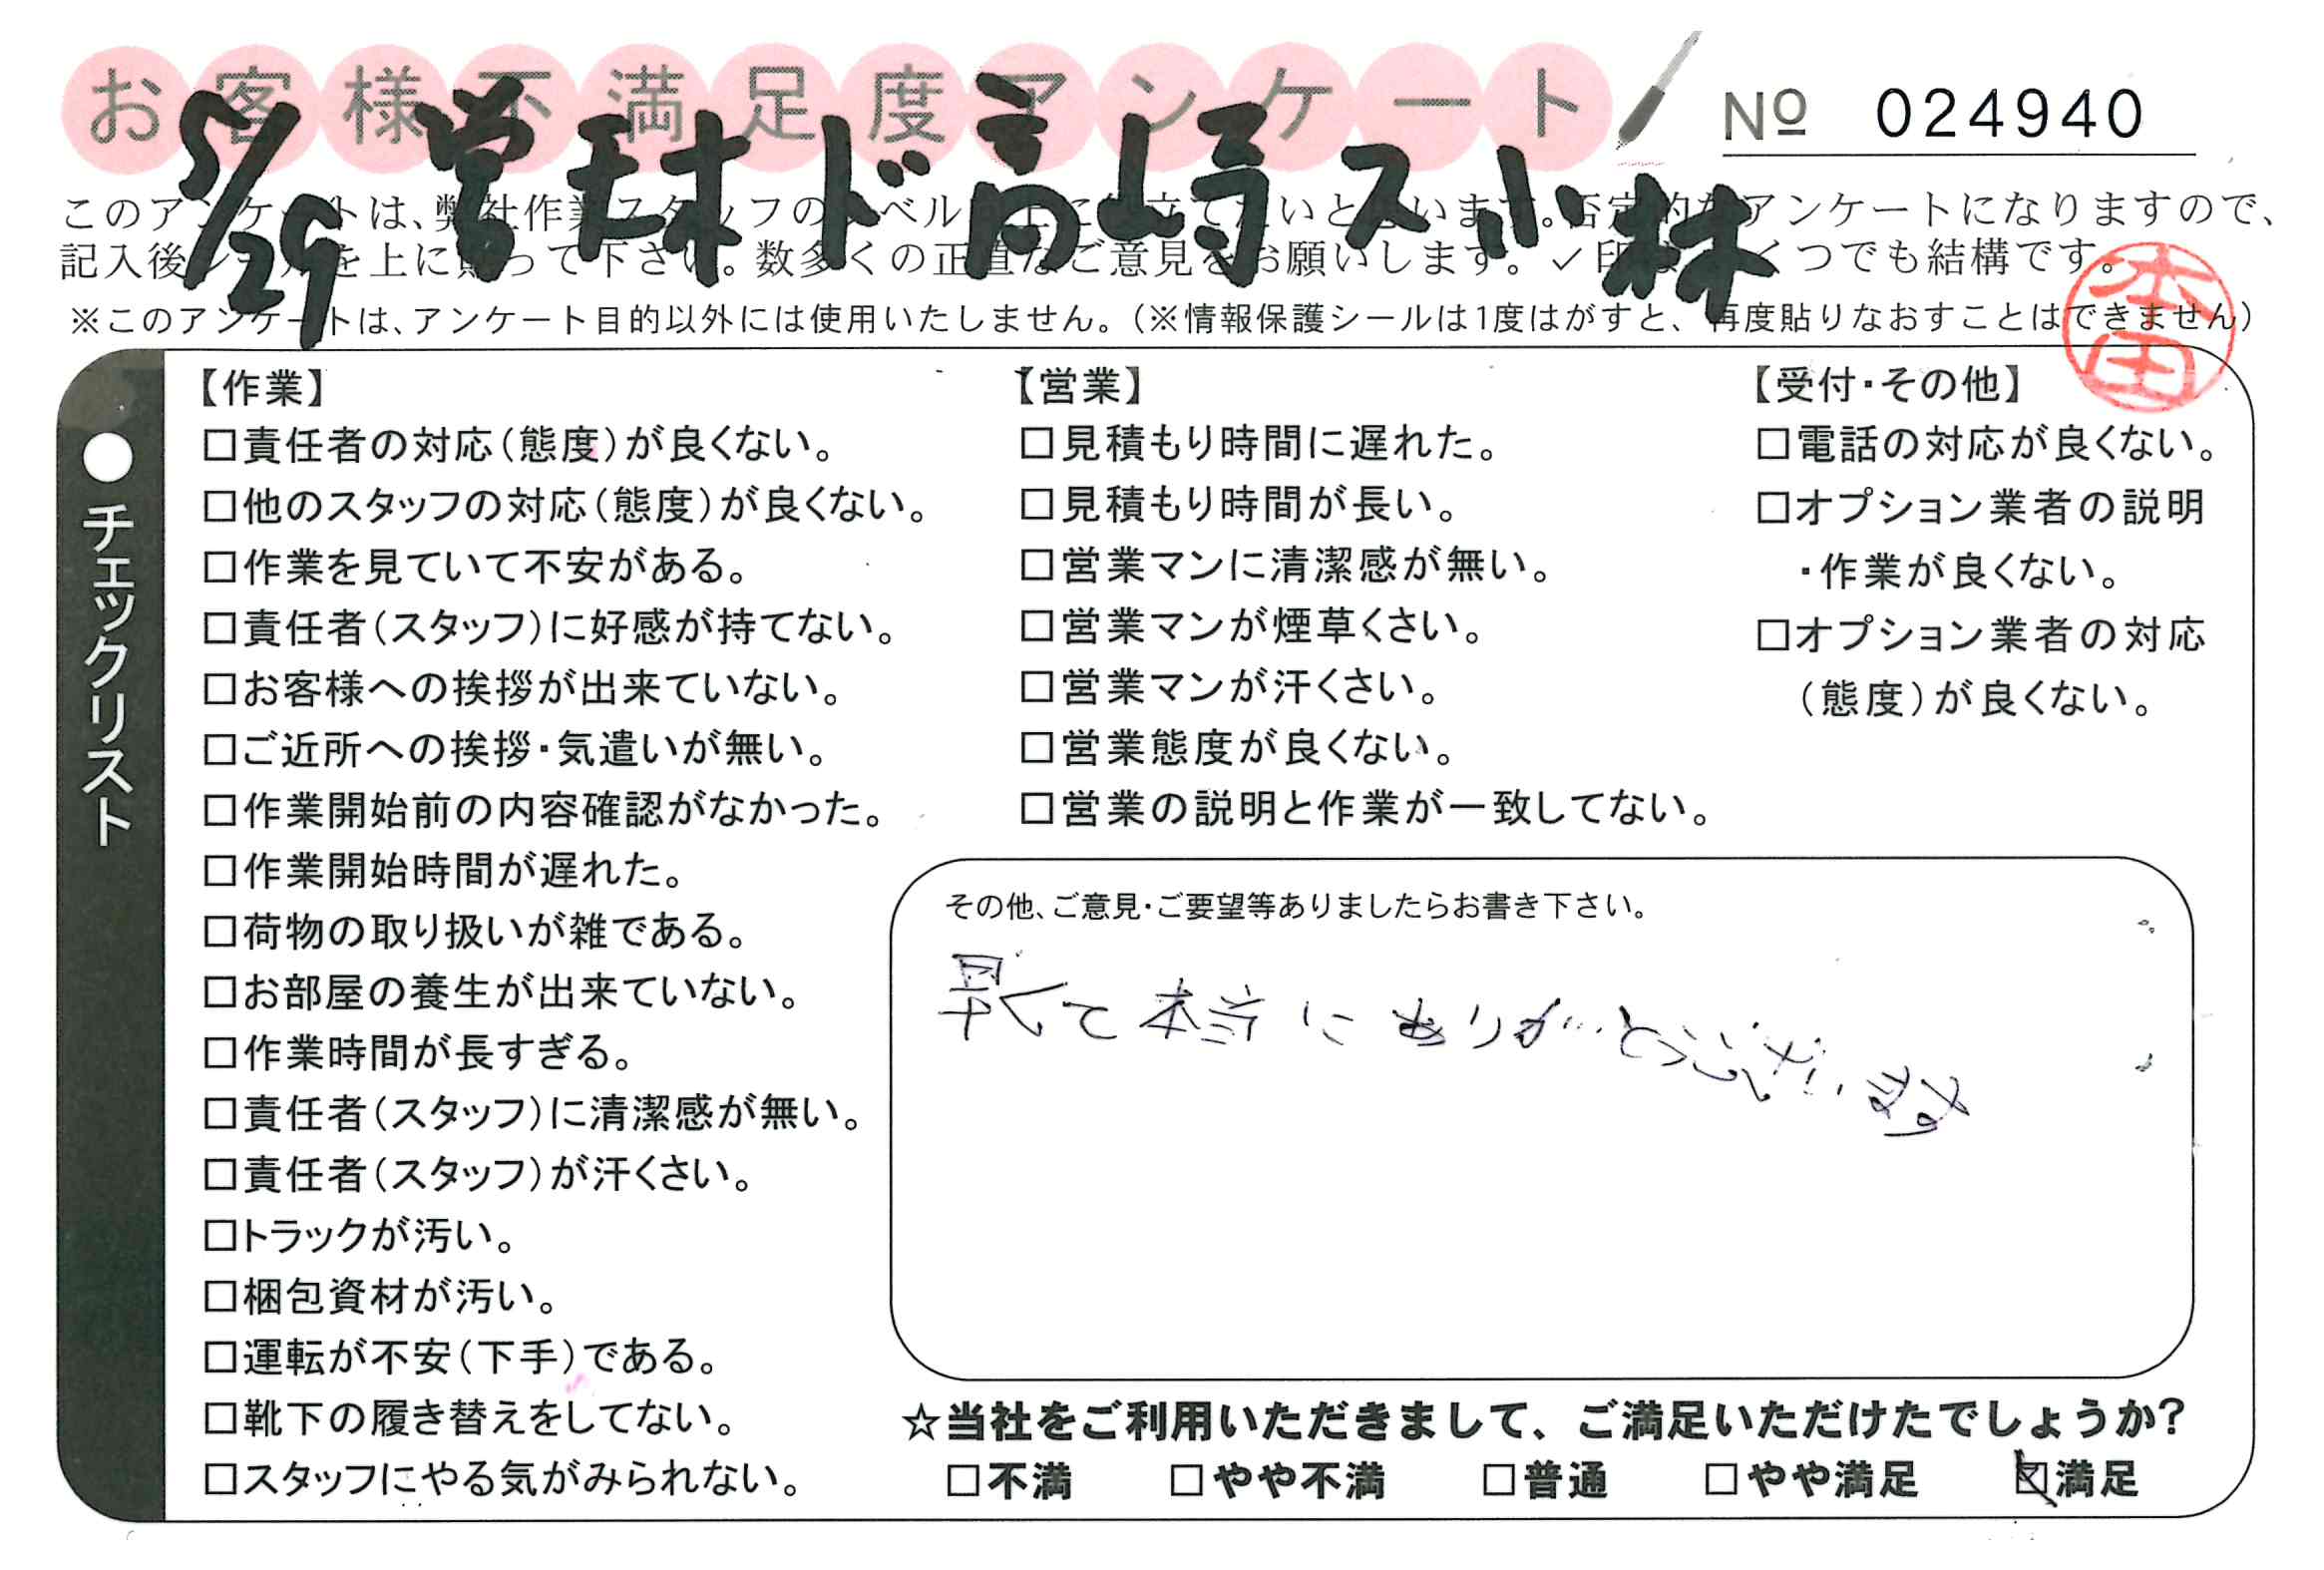 お客様不満足度アンケート
№ 024940
5/29 営 天木 ド 高嶋 ス 小林
このアンケートは、弊社作業スタッフのレベル向上に役立てたいと思います。否定的なアンケートになりますので、
記入後シールを上に貼って下さい。数多くの正直なご意見をお願いします。✓印はいくつでも結構です。
※このアンケートは、アンケート目的以外には使用いたしません。(※情報保護シールは1度はがすと、再度貼りなおすことはできません)
本田
●チェックリスト
【作業】
□責任者の対応(態度)が良くない。
□他のスタッフの対応(態度)が良くない。
□作業を見ていて不安がある。
□責任者(スタッフ)に好感が持てない。
□お客様への挨拶が出来ていない。
□ご近所への挨拶・気遣いが無い。
□作業開始前の内容確認がなかった。
□作業開始時間が遅れた。
□荷物の取り扱いが雑である。
□お部屋の養生が出来ていない。
□作業時間が長すぎる。
□責任者(スタッフ)に清潔感が無い。
□責任者(スタッフ)が汗くさい。
□トラックが汚い。
□梱包資材が汚い。
□運転が不安(下手)である。
□靴下の履き替えをしてない。
□スタッフにやる気がみられない。
【営業】
□見積もり時間に遅れた。
□見積もり時間が長い。
□営業マンに清潔感が無い。
□営業マンが煙草くさい。
□営業マンが汗くさい。
□営業態度が良くない。
□営業の説明と作業が一致してない。
【受付・その他】
□電話の対応が良くない。
□オプション業者の説明
・作業が良くない。
□オプション業者の対応
(態度)が良くない。
その他、ご意見・ご要望等ありましたらお書き下さい。
早くて本当にありがとうございます
☆当社をご利用いただきまして、ご満足いただけたでしょうか?
□不満 □やや不満 □普通 □やや満足 ☑満足